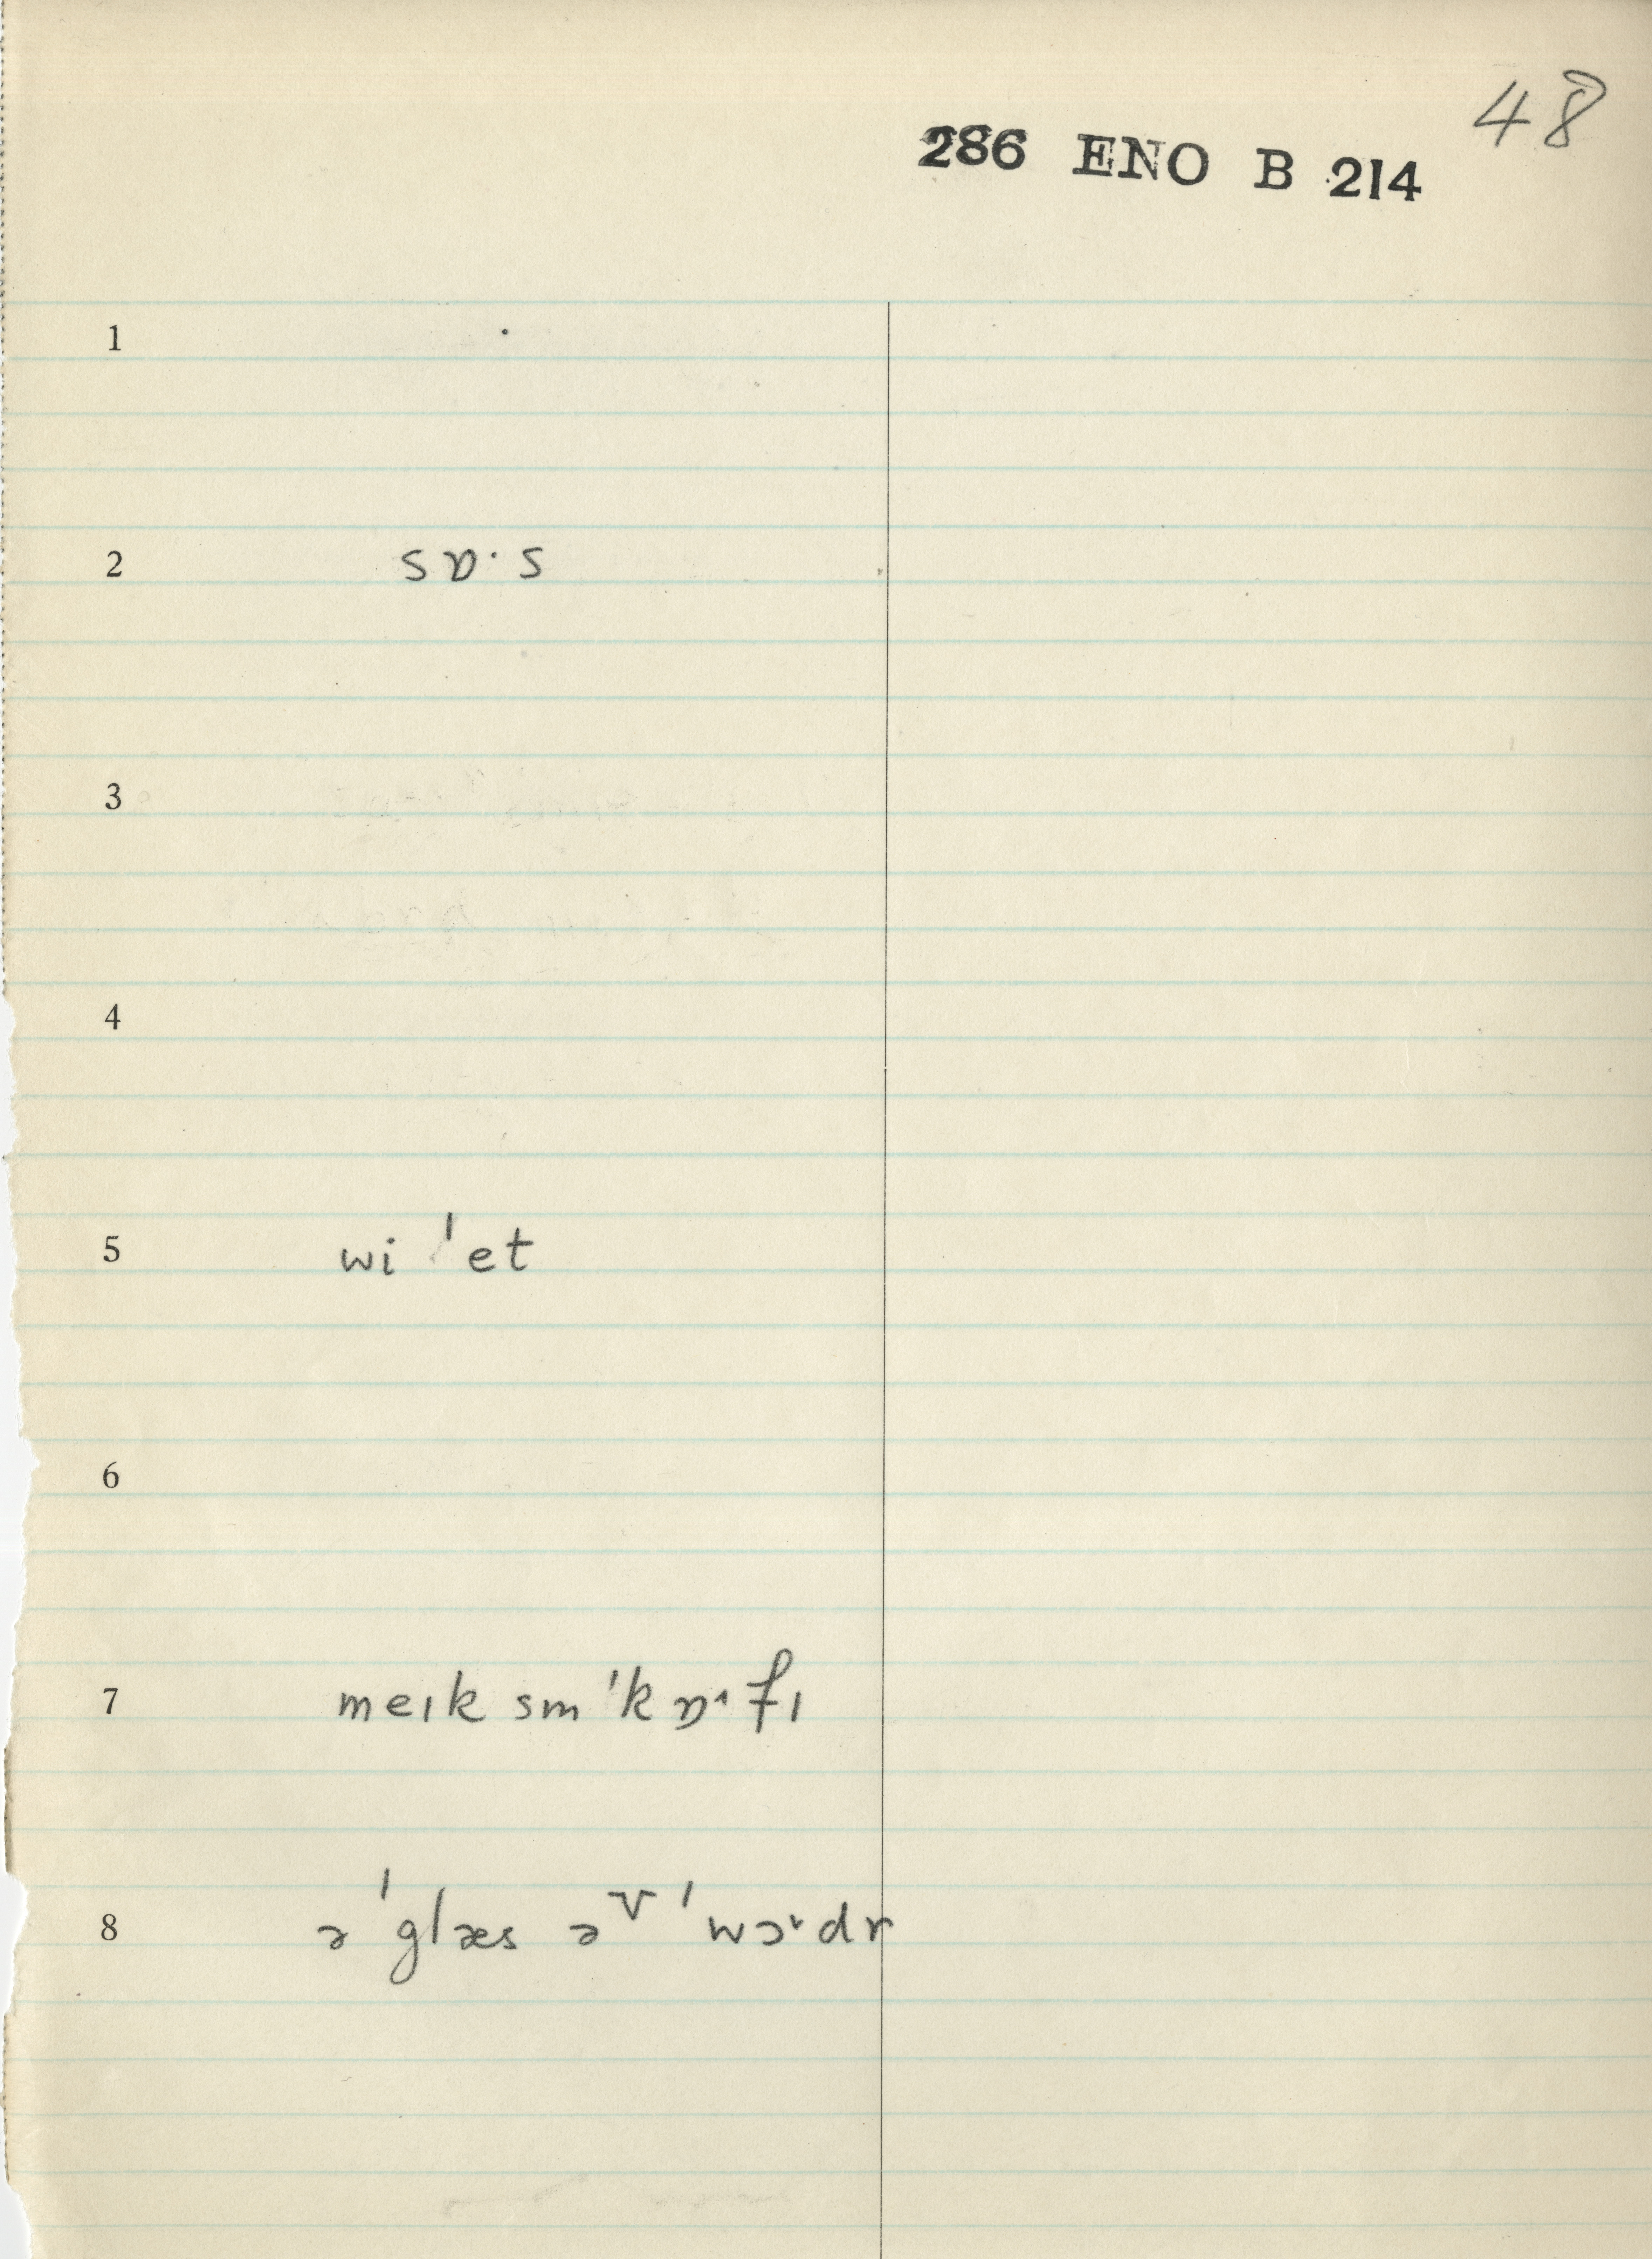 48
286 ENO B 214
1
2 sɒ·s
3
4
5 wi ˈet
6
7 meɪk sm ˈkɒ˔fɪ
8 ə ˈglæs əᵛ ˈwɔ˞dr